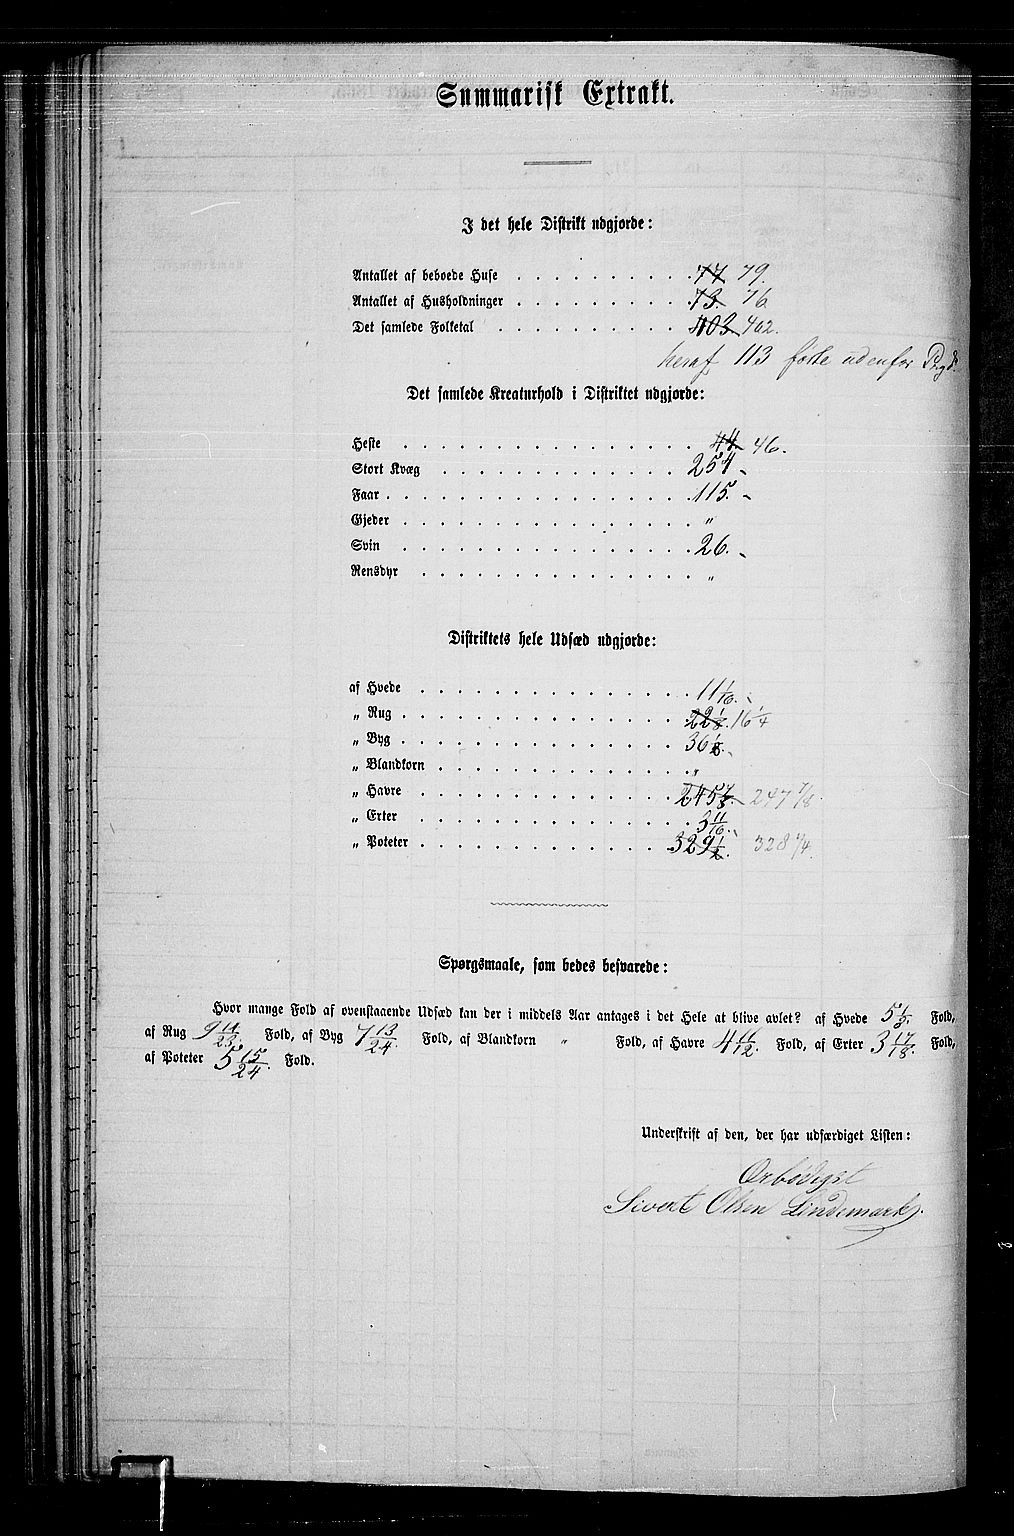 Summarisk Extrakt.
I det hele Distrikt udgjorde:
Antallet af beboede Huse . . . . . . . . . . 77 79.
Antallet af Husholdninger . . . . . . . . . . 73. 76
Det samlede Folketal . . . . . . . . . . 403 402.
heraf 113 førte udenfor Bygd.
Det samlede Kreaturhold i Distriktet udgjorde:
Heste . . . . . . . . . . 44 46.
Stort Kvæg . . . . . . . . . . 254
Faar . . . . . . . . . . 115.
Gjeder . . . . . . . . . . "
Svin . . . . . . . . . . 26.
Rensdyr . . . . . . . . . . "
Distriktets hele Udsæd udgjorde:
af Hvede . . . . . . . . . . 11 1/16.
„ Rug . . . . . . . . . . 22 1/8. 16 1/4
„ Byg . . . . . . . . . . 36 1/8.
„ Blandkorn . . . . . . . . . . "
„ Havre . . . . . . . . . . 245 7/8. 247 7/8
„ Erter . . . . . . . . . . 3 11/16.
„ Poteter . . . . . . . . . . 329 1/2. 328 1/4.
Spørgsmaale, som bedes besvarede:
Hvor mange Fold af ovenstaaende Udsæd kan der i middels Aar antages i det Hele at blive avlet? af Hvede 5 1/3. Fold,
af Rug 9 14/23. Fold, af Byg 7 13/24. Fold, af Blandkorn " Fold, af Havre 4 11/12. Fold, af Erter 3 17/18. Fold,
af Poteter 5 15/24. Fold.
Underskrift af den, der har udfærdiget Listen:
Ærbødigst
Sivert Olsen Lindemark.